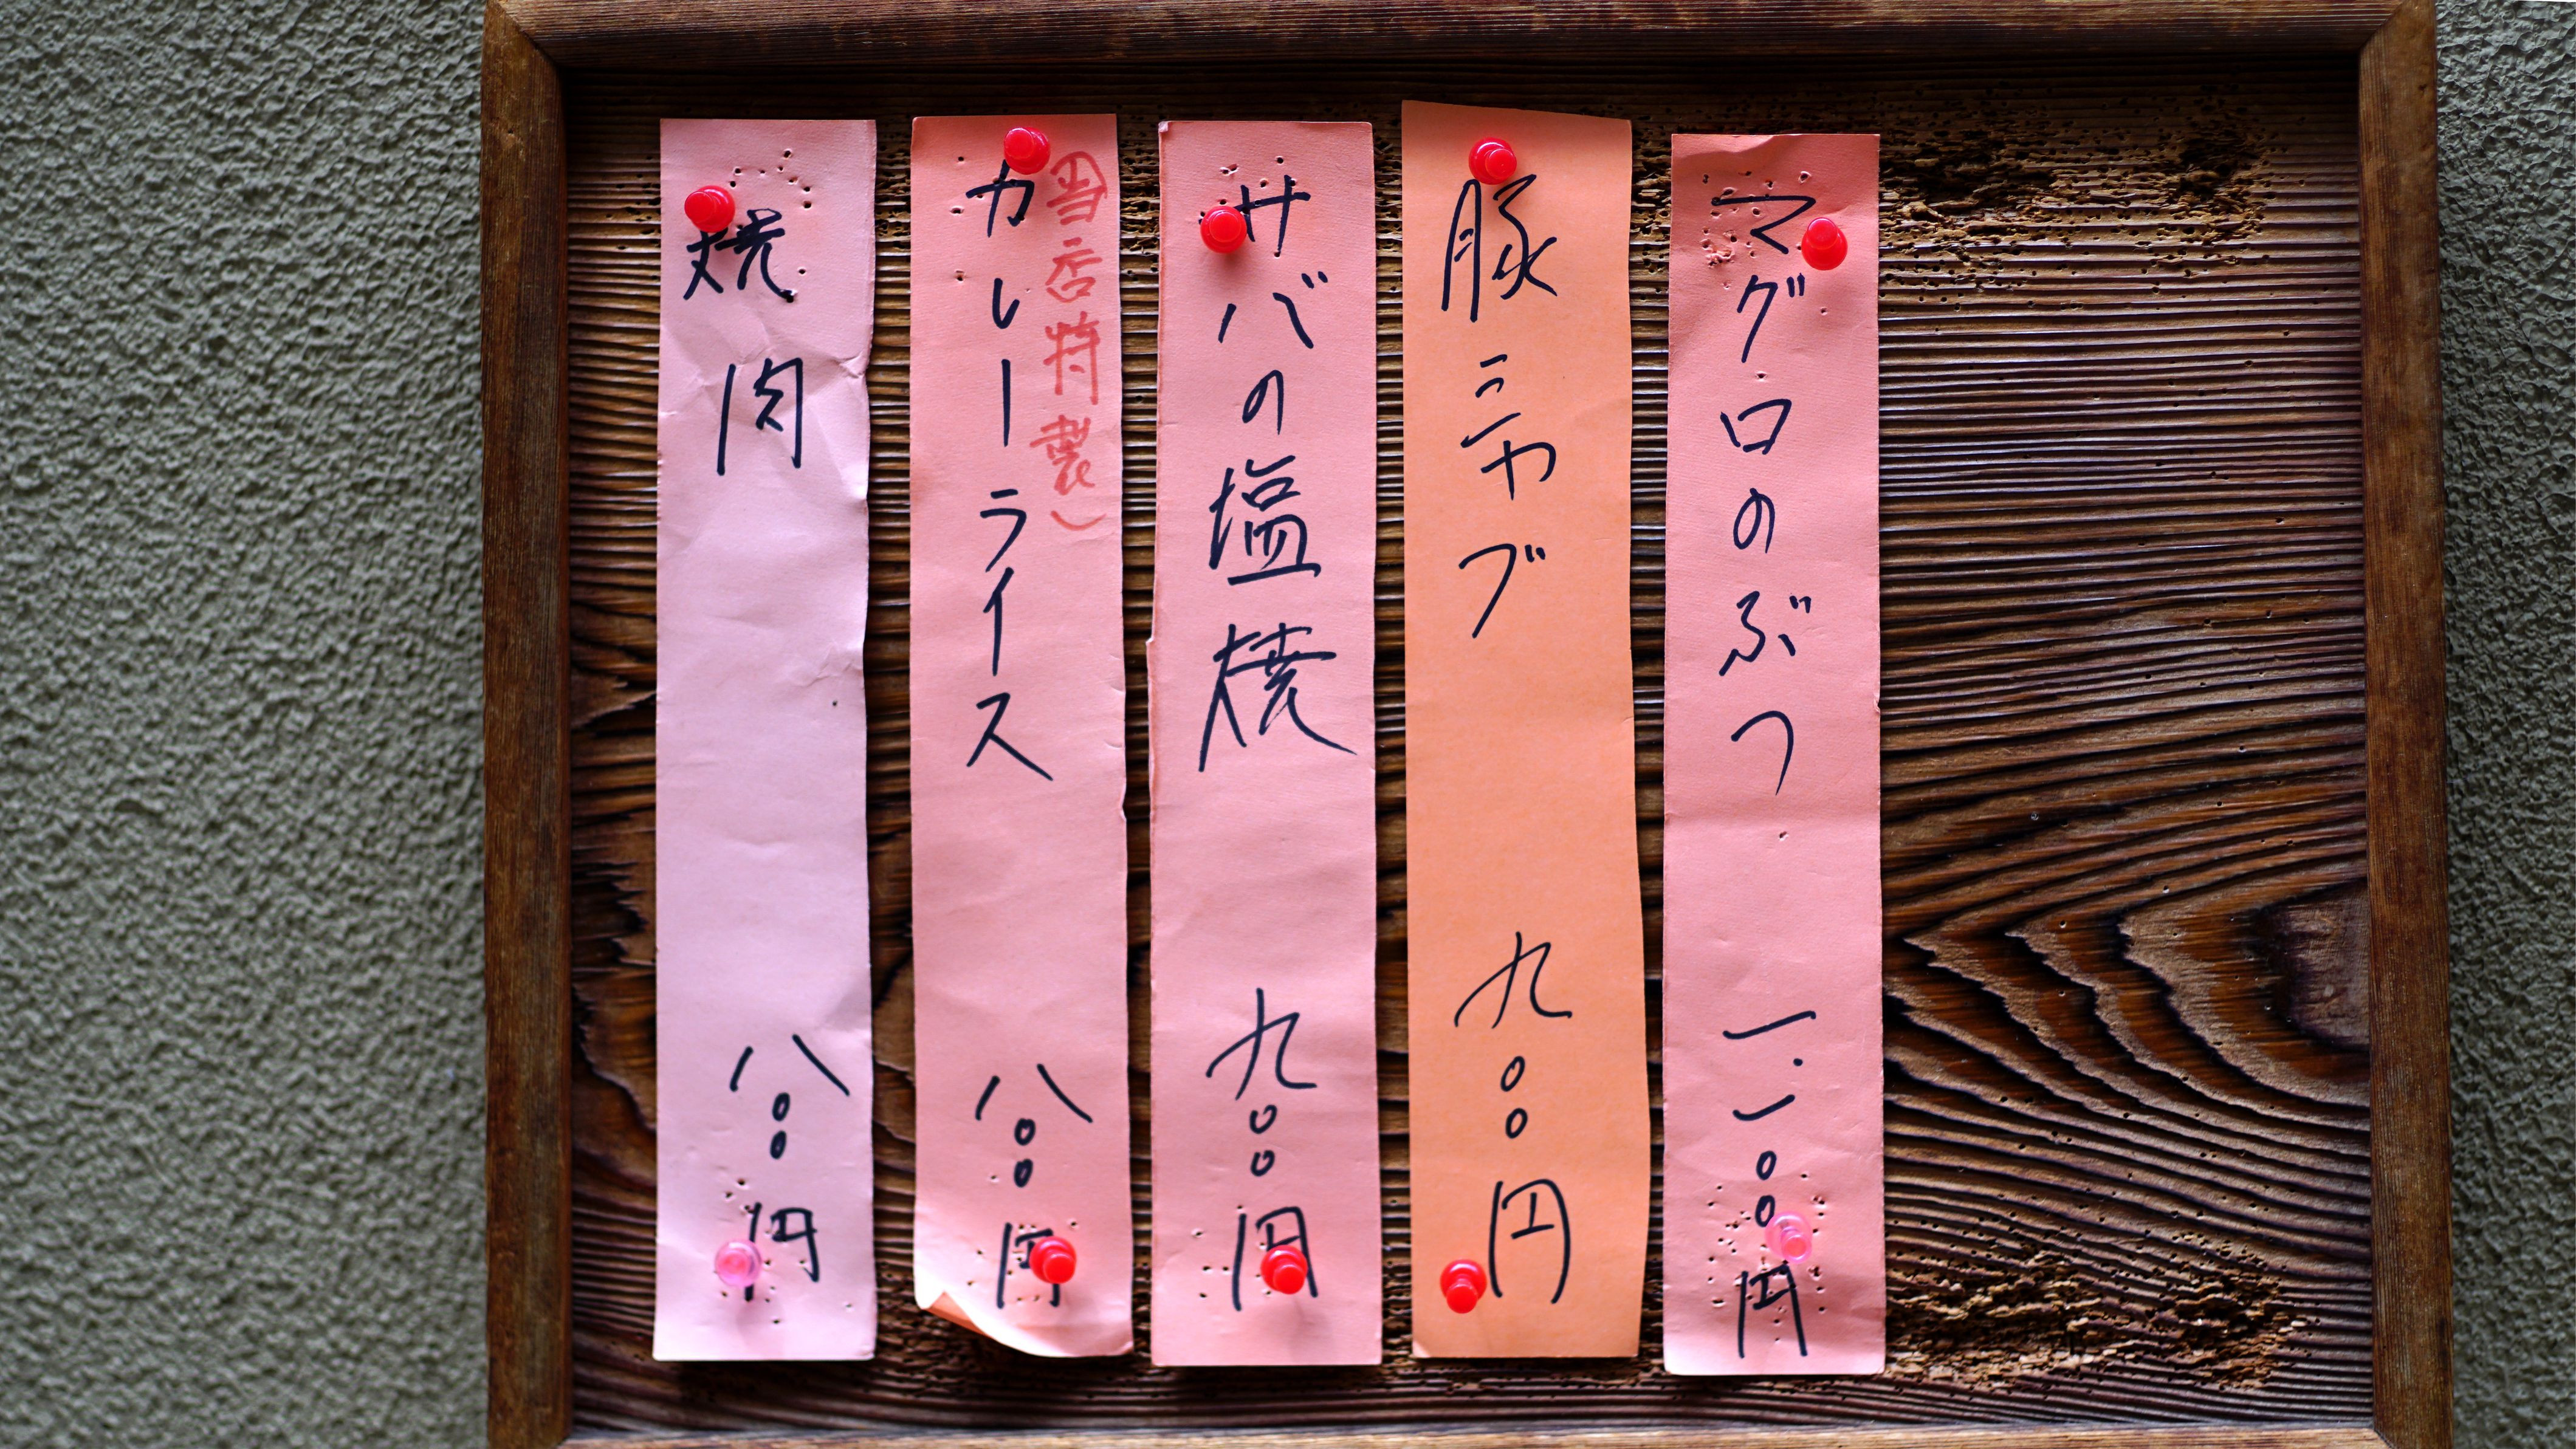 マグロのぶつ 一.一〇〇円
豚シャブ 九〇〇円
サバの塩焼 九〇〇円
当店特製）
カレーライス 八〇〇円
焼肉 八〇〇円